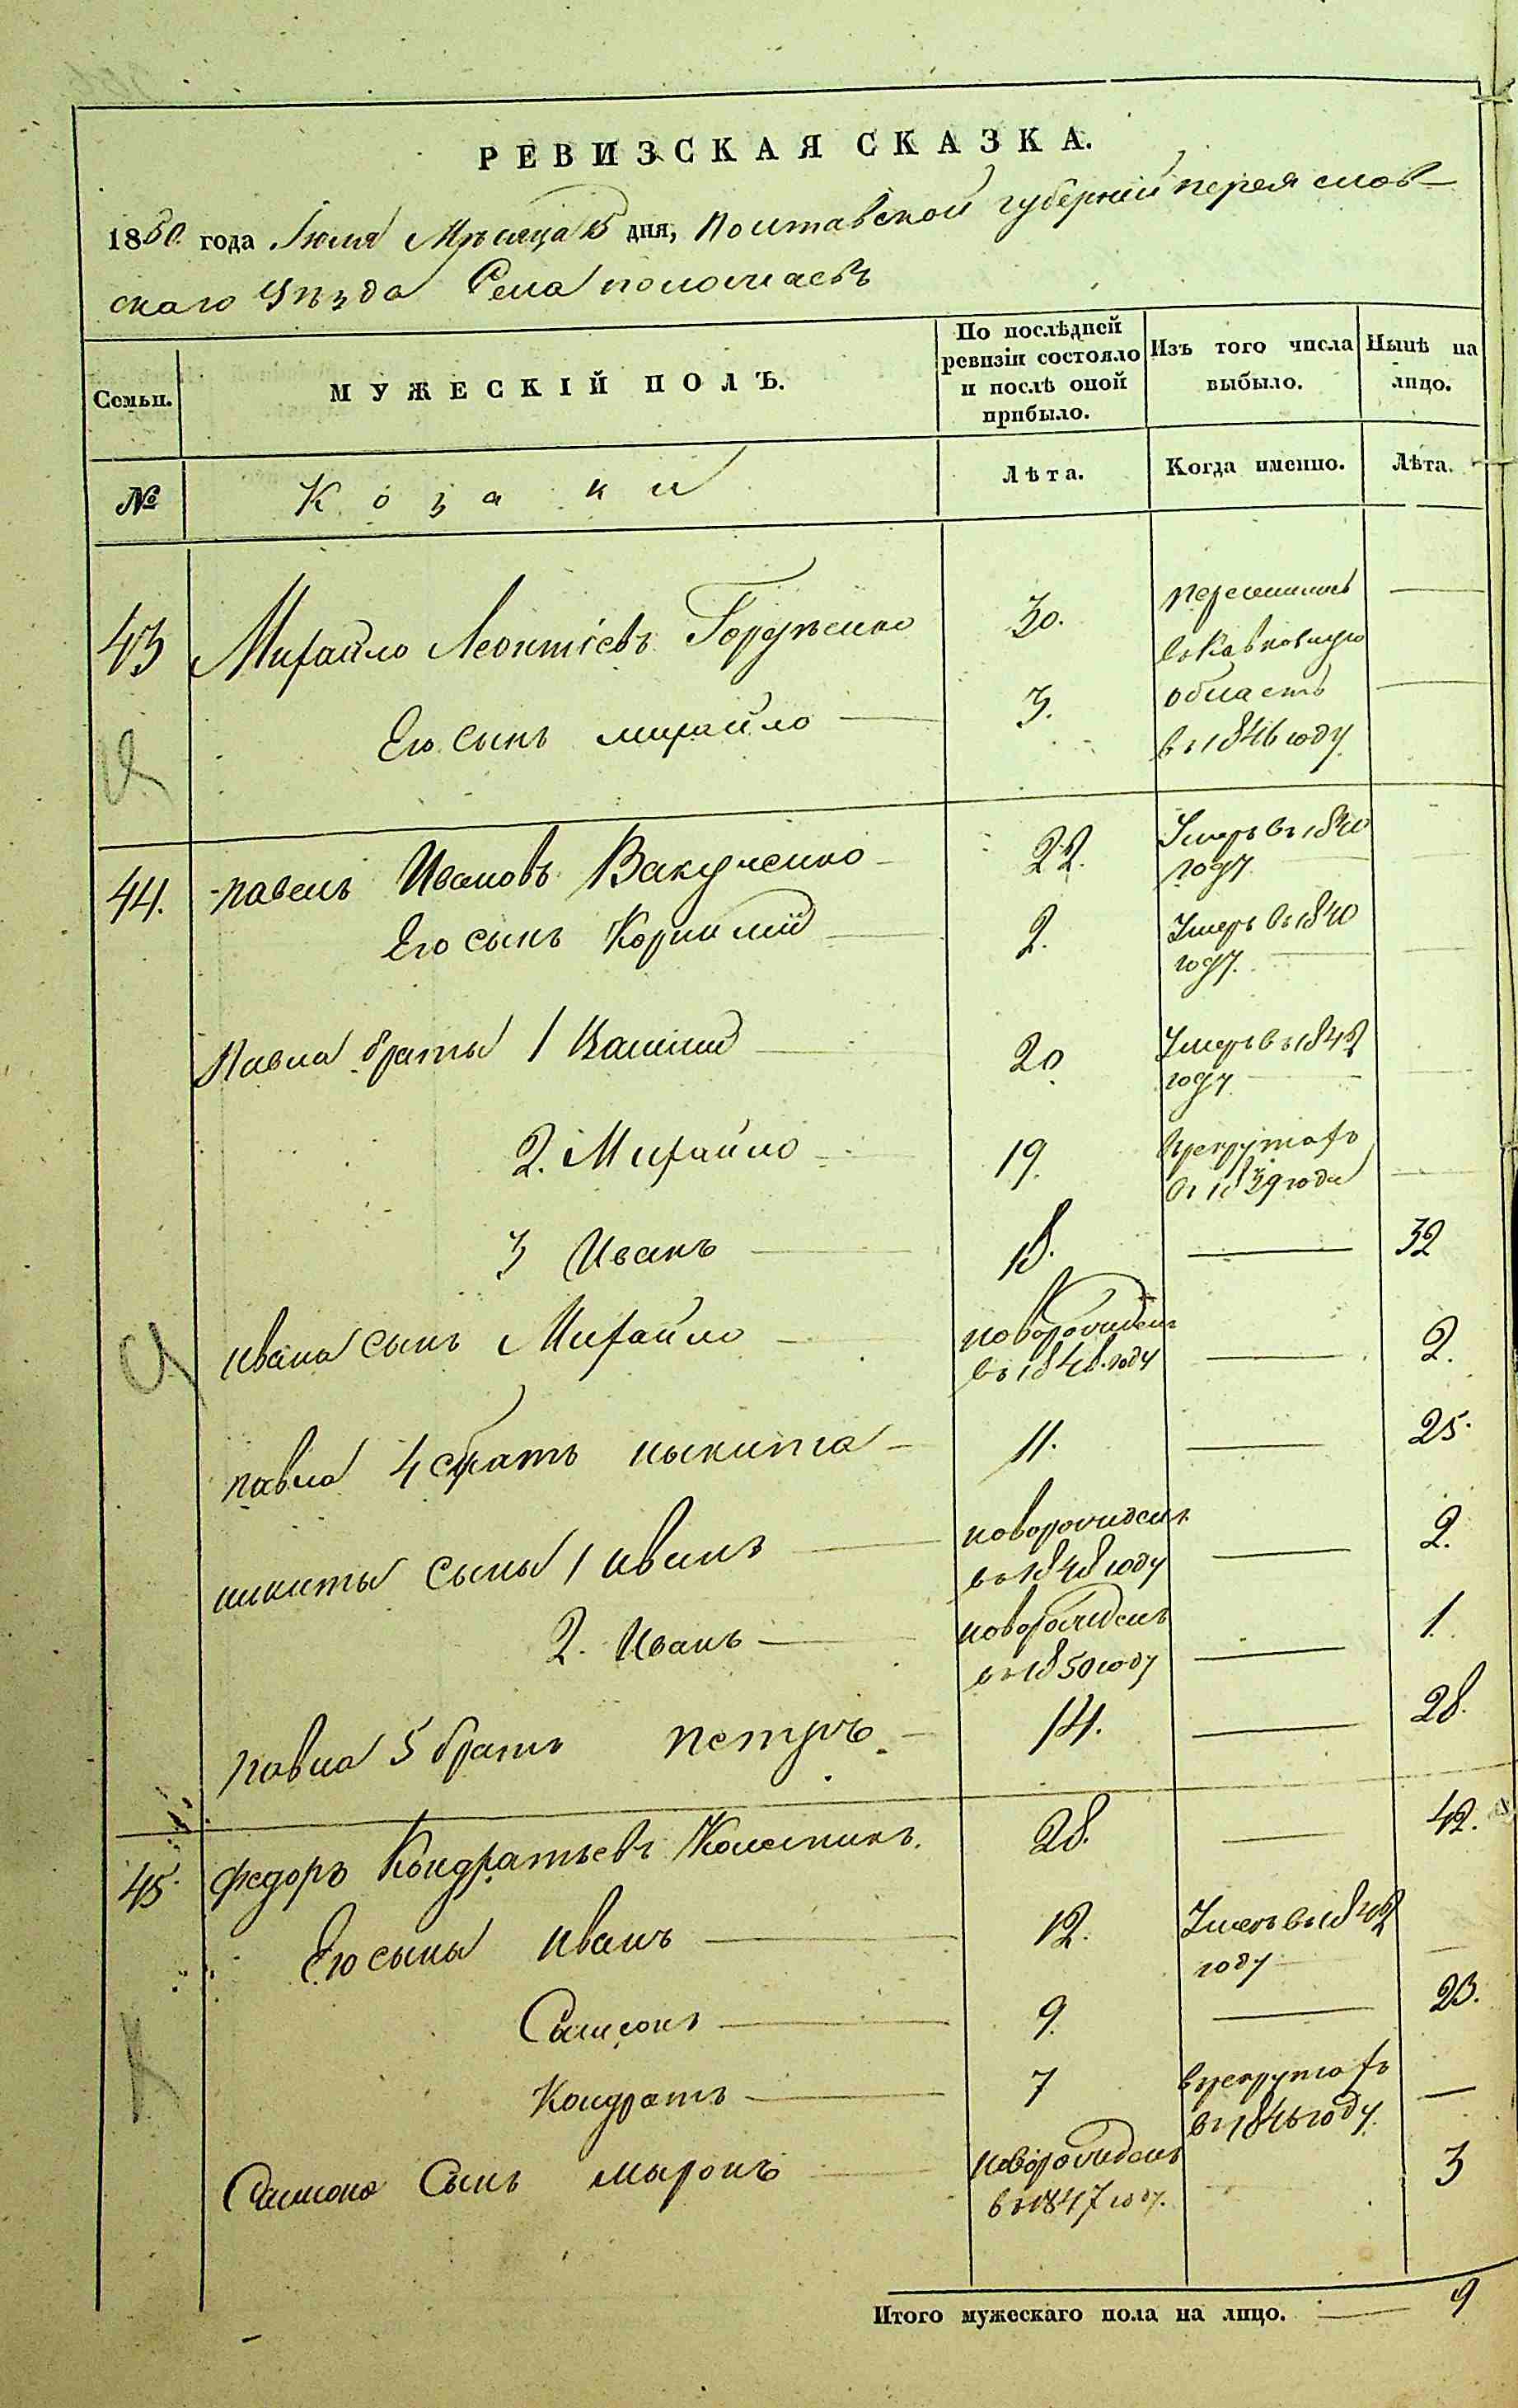 РЕВИЗСКАЯ СКАЗКА.
1850. года Іюля Мѣсяца 15 дня, Полтавской губерніи переяслов-
скаго Уѣзда Села помокляевъ
Семьи.
МУЖЕСКІЙ ПОЛЪ.
По послѣдней ревизіи состояло и послѣ оной прибыло.
Изъ того числа выбыло.
Нынѣ на лицо.
№
Козаки
Лѣта.
Когда именно.
Лѣта.
43 Михайло Леонтіевъ 30. переселились —
въ Кавказскую
Его сынъ михайло — 3. область —
въ 1846 году
44. павелъ Ивановъ Вакуленко — 22. Умеръ въ 1840 году —
Его сынъ Корнилій — 2. Умеръ въ 1840 году. —
Павла браты 1 — 20 Умеръ въ 1842 году —
2. Михайло — 19. в рекрутахъ въ 1839 года —
3 Иванъ — 18. — 32
ивана сынъ Михайло — новорожденъ въ 1848. году — 2.
павла 4 братъ никита — 11. — 25.
никиты сыны 1 иванъ — новорожденъ въ 1848 году — 2.
2. Иванъ — новорожденъ въ 1850 году — 1.
павла 5 братъ петръ. — 14. — 28.
45. федоръ Кондратьевъ Колесникъ. 28. — 42.
Его сыны иванъ — 12. Умеръ въ 1842 году —
Самсонъ — 9. — 23.
Кондратъ — 7 в рекрутахъ въ 1846 году. —
Самсона Сынъ миронъ — новорожденъ въ 1847 году. 3
Итого мужескаго пола на лицо. — 9